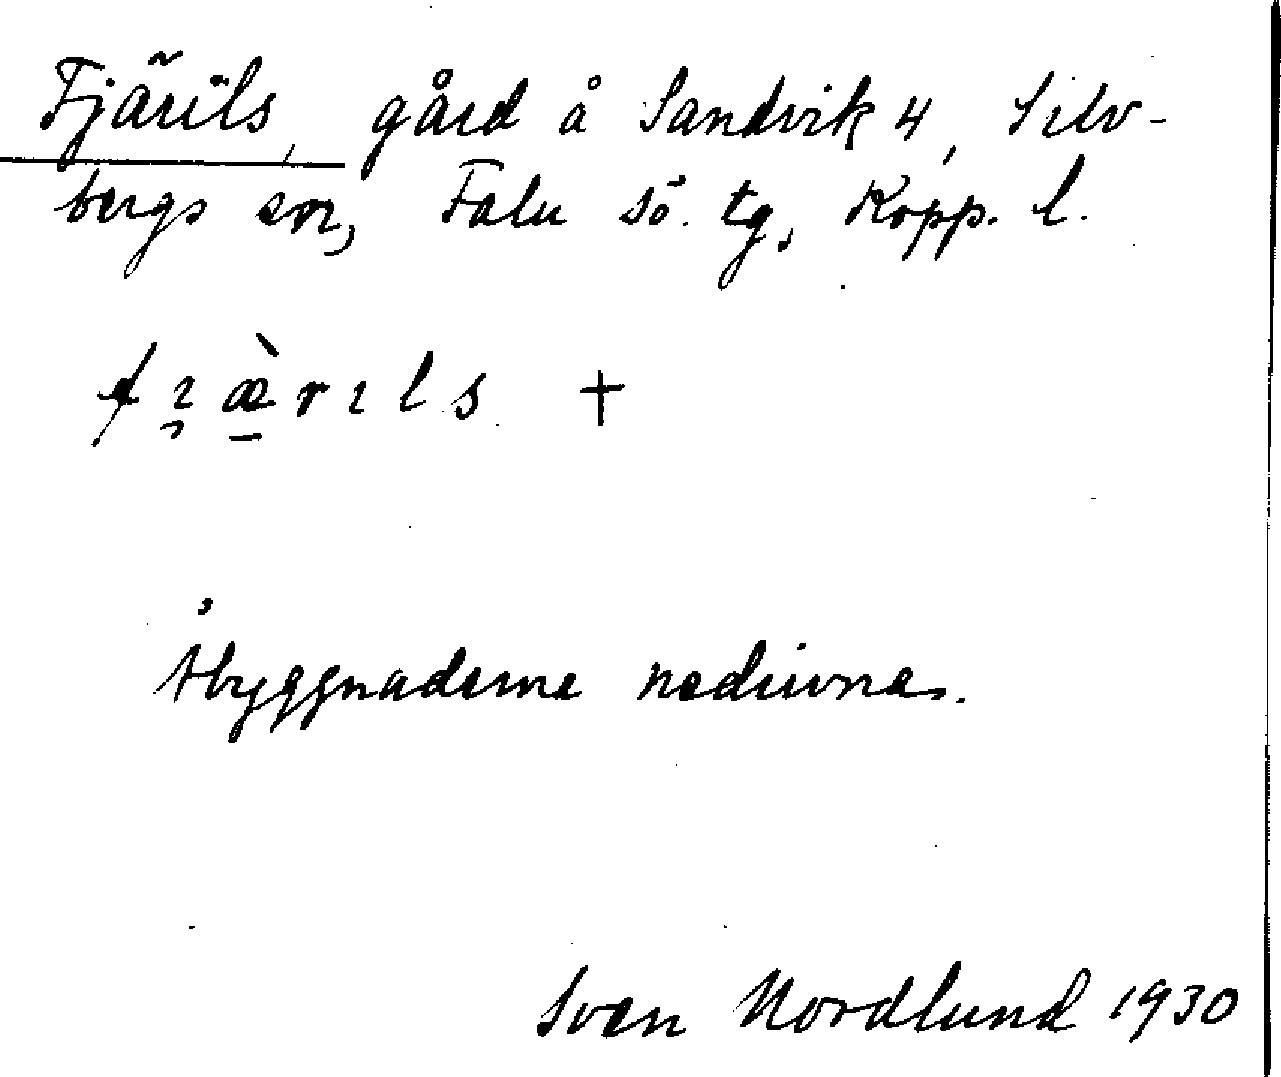 Fjärils, gård å Sandvik 4, Silv-
bergs sn, Falu sö. tg, Kopp. l.
fı̯æ̠̀rıls +
Åbyggnaderna nedrivna.
Sven Nordlund 1930